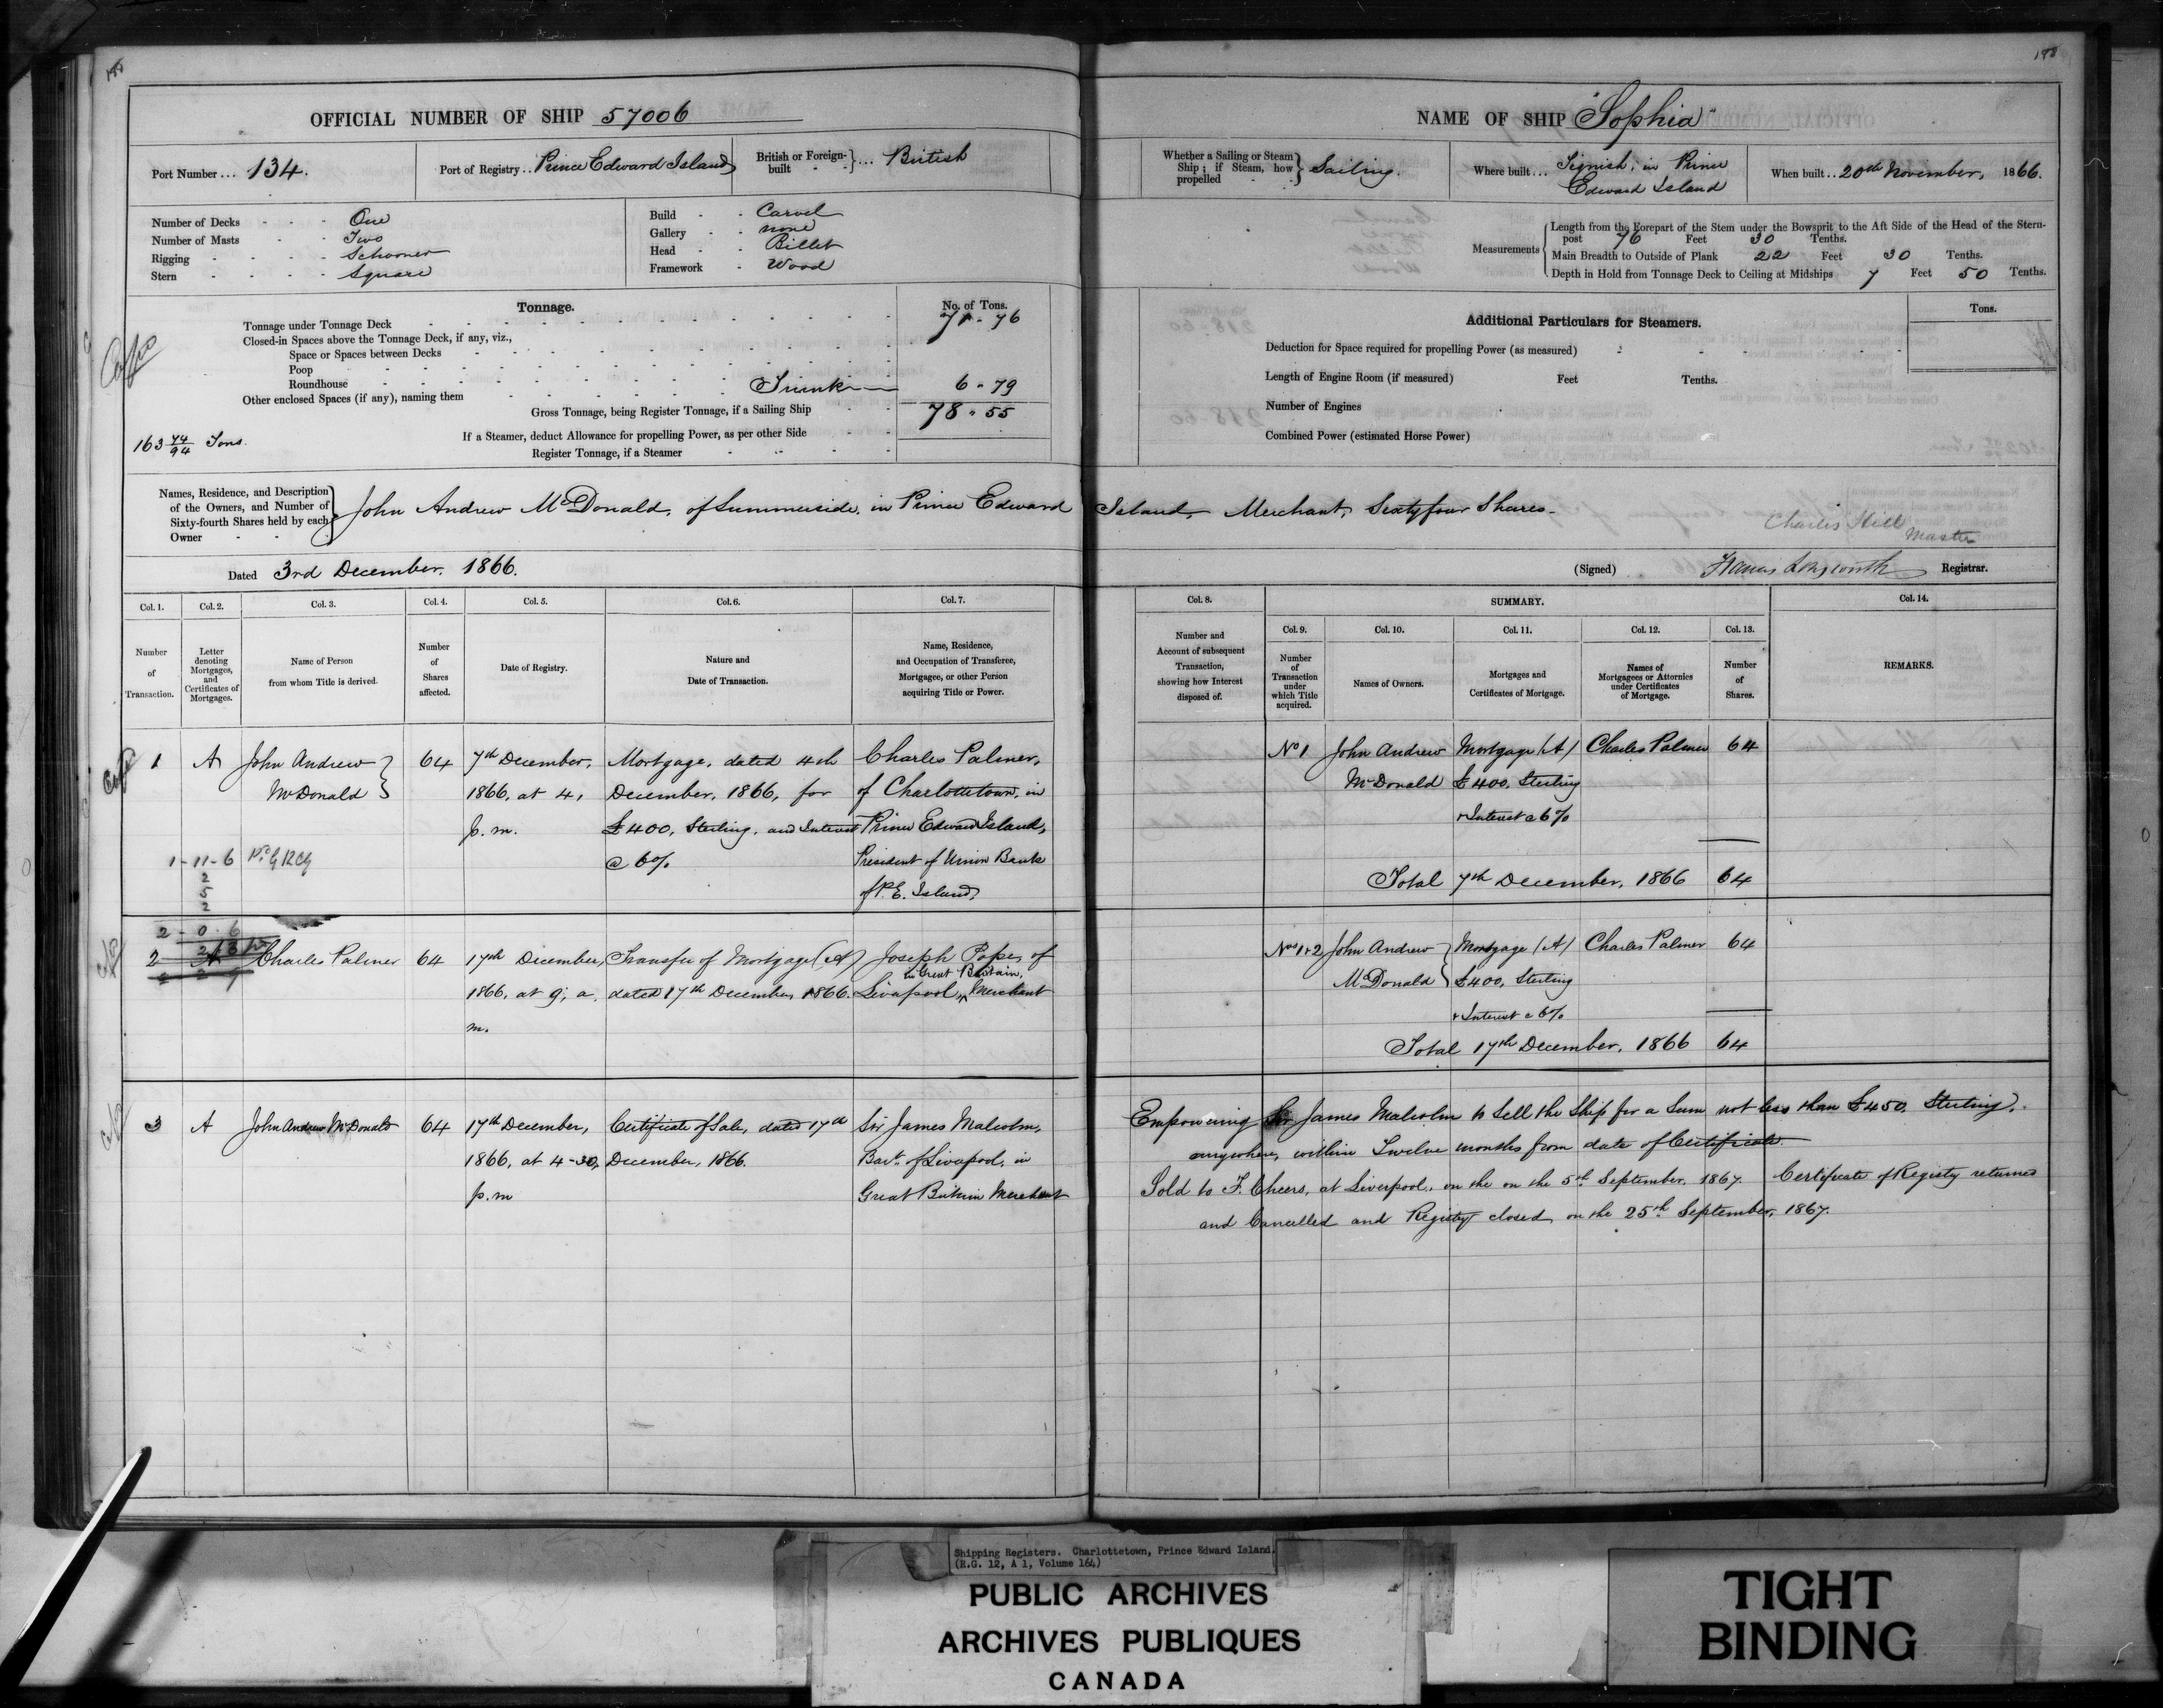 178
OFFICIAL NUMBER OF SHIP 57006
Port Number ... 134.
Port of Registry .. Prince Edward Island
British or Foreign-built } ... British
Number of Decks - - - One
Number of Masts - - Two
Rigging - - - - Schooner
Stern - - - - Square
Build - - Carvel
Gallery - - none
Head - - Billet
Framework - Wood
Tonnage.
No. of Tons.
Tonnage under Tonnage Deck 71 - 76
Closed-in Spaces above the Tonnage Deck, if any, viz.,
Space or Spaces between Decks
Poop
Roundhouse
Other enclosed Spaces (if any), naming them Trunk 6 - 79
Gross Tonnage, being Register Tonnage, if a Sailing Ship 78 - 55
163 74/94 Tons.
If a Steamer, deduct Allowance for propelling Power, as per other Side
Register Tonnage, if a Steamer
178
NAME OF SHIP "Sophia"
Whether a Sailing or Steam Ship; if Steam, how propelled } Sailing.
Where built ... Tignish, in Prince Edward Island
When built .. 20th November, 1866.
Measurements
Length from the Forepart of the Stem under the Bowsprit to the Aft Side of the Head of the Stern-
post 76 Feet 30 Tenths.
Main Breadth to Outside of Plank 22 Feet 30 Tenths.
Depth in Hold from Tonnage Deck to Ceiling at Midships 7 Feet 50 Tenths.
Additional Particulars for Steamers.
Tons.
Deduction for Space required for propelling Power (as measured)
Length of Engine Room (if measured) Feet Tenths.
Number of Engines
Combined Power (estimated Horse Power)
Names, Residence, and Description
of the Owners, and Number of
Sixty-fourth Shares held by each
Owner
John Andrew McDonald, of Summerside, in Prince Edward Island, Merchant, Sixty four Shares.
Charles Hill
Master
Dated 3rd December, 1866.
(Signed) Francis Longworth Registrar.
Col. 1. Col. 2. Col. 3. Col. 4. Col. 5. Col. 6. Col. 7.
Number of Transaction.
Letter denoting Mortgages, and Certificates of Mortgages.
Name of Person from whom Title is derived.
Number of Shares affected.
Date of Registry.
Nature and Date of Transaction.
Name, Residence, and Occupation of Transferee, Mortgagee, or other Person acquiring Title or Power.
Col. 8. SUMMARY. Col. 14.
Col. 9. Col. 10. Col. 11. Col. 12. Col. 13.
Number and Account of subsequent Transaction, showing how Interest disposed of.
Number of Transaction under which Title acquired.
Names of Owners.
Mortgages and Certificates of Mortgage.
Names of Mortgagees or Attornies under Certificates of Mortgage.
Number of Shares.
REMARKS.
1 A John Andrew McDonald } 64
7th December, 1866, at 4, p. m.
Mortgage, dated 4th December, 1866, for £400, Sterling, and Interest @ 6%
Charles Palmer, of Charlottetown, in Prince Edward Island, President of Union Bank of P. E. Island,
1 - 11 - 6
2
5
2
2 - 0 - 6
No 1 John Andrew McDonald
Mortgage (A) £400, Sterling + Interest @ 6%
Charles Palmer 64
Total 7th December, 1866 64
2 Charles Palmer 64
17th December, 1866, at 9, a. m.
Transfer of Mortgage (A) dated 17th December, 1866.
Joseph Pope, of Liverpool, in Great Britain, Merchant
Nos 1+2 John Andrew McDonald }
Mortgage (A) £400, Sterling + Interest @ 6%
Charles Palmer 64
Total 17th December, 1866 64
3 A John Andrew McDonald 64
17th December, 1866, at 4-30, p. m
Certificate of Sale, dated 17th December, 1866.
Sir James Malcolm, Bart. of Liverpool, in Great Britain Merchant
Empowering Sir James Malcolm to Sell the Ship for a Sum not less than £450. Sterling,
anywhere, within Twelve months from date of Certificate.
Sold to F. Cheers, at Liverpool, on the on the 5th September, 1867. Certificate of Registry returned
and Cancelled and Registry closed, on the 25th September, 1867.
Shipping Registers. Charlottetown, Prince Edward Island.
(R.G. 12, A 1, Volume 164)
PUBLIC ARCHIVES
ARCHIVES PUBLIQUES
CANADA
TIGHT
BINDING